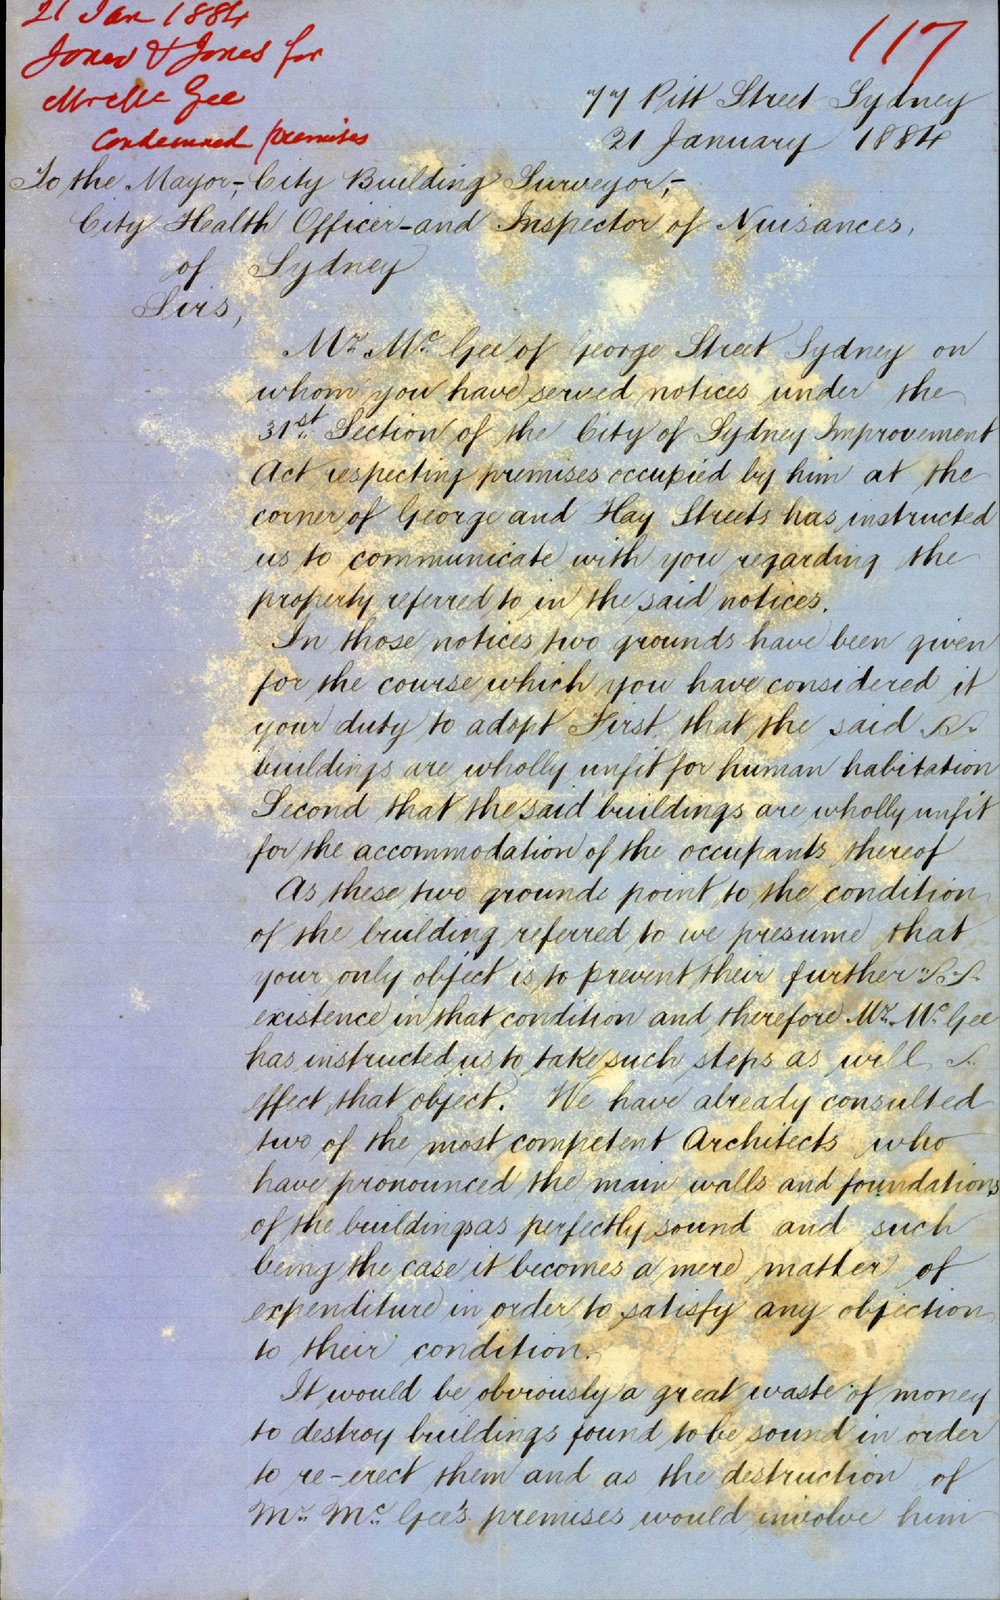 21 Jan 1884
Jones & Jones for
Mr McGee
Condemned premises
117
77 Pitt Street Sydney
21 January 1884
To the Mayor,- City Building Surveyor,-
City Health Officer-and Inspector of Nuisances,
of Sydney
Sirs,
Mr. Mc. Gee of George Street Sydney on
whom you have served notices under the
31st. Section of the City of Sydney Improvement
Act respecting premises occupied by him at the
corner of George and Hay Streets has instructed
us to communicate with you regarding the
property referred to in the said notices.
In those notices two grounds have been given
for the course which you have considered it
your duty to adopt First, that the said
buildings are wholly unfit for human habitation
Second that the said buildings are wholly unfit
for the accommodation of the occupants thereof
As these two grounds point to the condition
of the building referred to we presume that
your only object is to prevent their further
existence in that condition and therefore Mr. Mc. Gee
has instructed us to take such steps as will
effect that object. We have already consulted
two of the most competent Architects who
have pronounced the main walls and foundations
of the buildings as perfectly sound and such
being the case it becomes a mere matter of
expenditure in order to satisfy any objection
to their condition.
It would be obviously a great waste of money
to destroy buildings found to be sound in order
to re-erect them and as the destruction of
Mr. Mc. Gee's premises would involve him